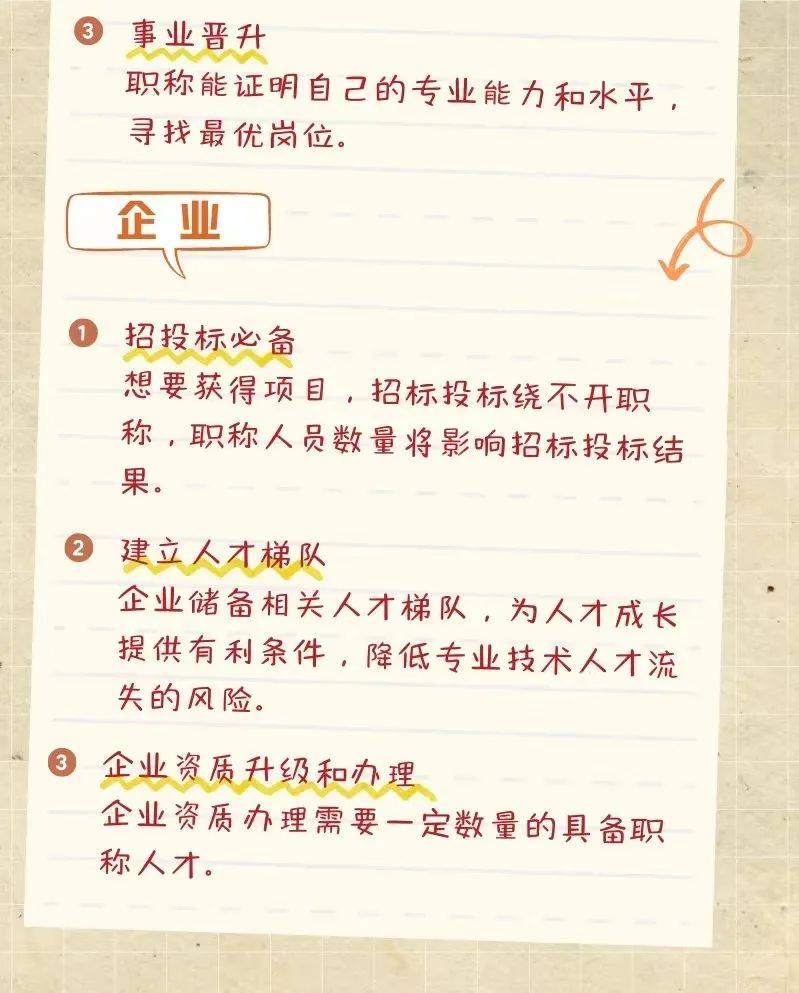 3 事业晋升
职称能证明自己的专业能力和水平，
寻找最优岗位。
企业
1 招投标必备
想要获得项目，招标投标绕不开职
称，职称人员数量将影响招标投标结
果。
2 建立人才梯队
企业储备相关人才梯队，为人才成长
提供有利条件，降低专业技术人才流
失的风险。
3 企业资质升级和办理
企业资质办理需要一定数量的具备职
称人才。